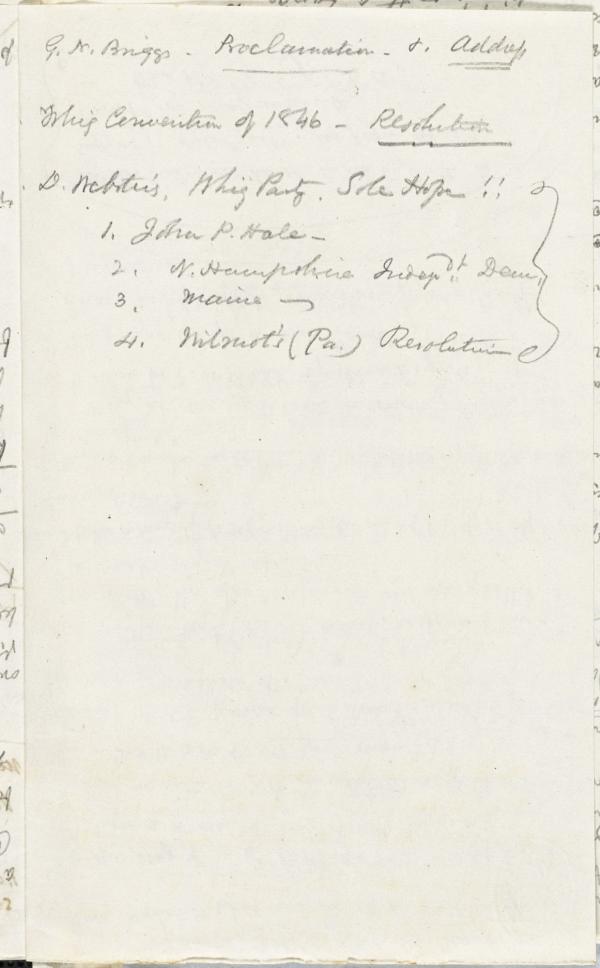 G. N. Briggs - Proclamation - &. Address
Whig Convention of 1846 - Resolution
D. Webster's, Whig Party. Sole Hope !!
1. John P. Hale -
2. N. Hampshire Indepdt. Dem.
3. Maine -
4. Wilmot's (Pa.) Resolution